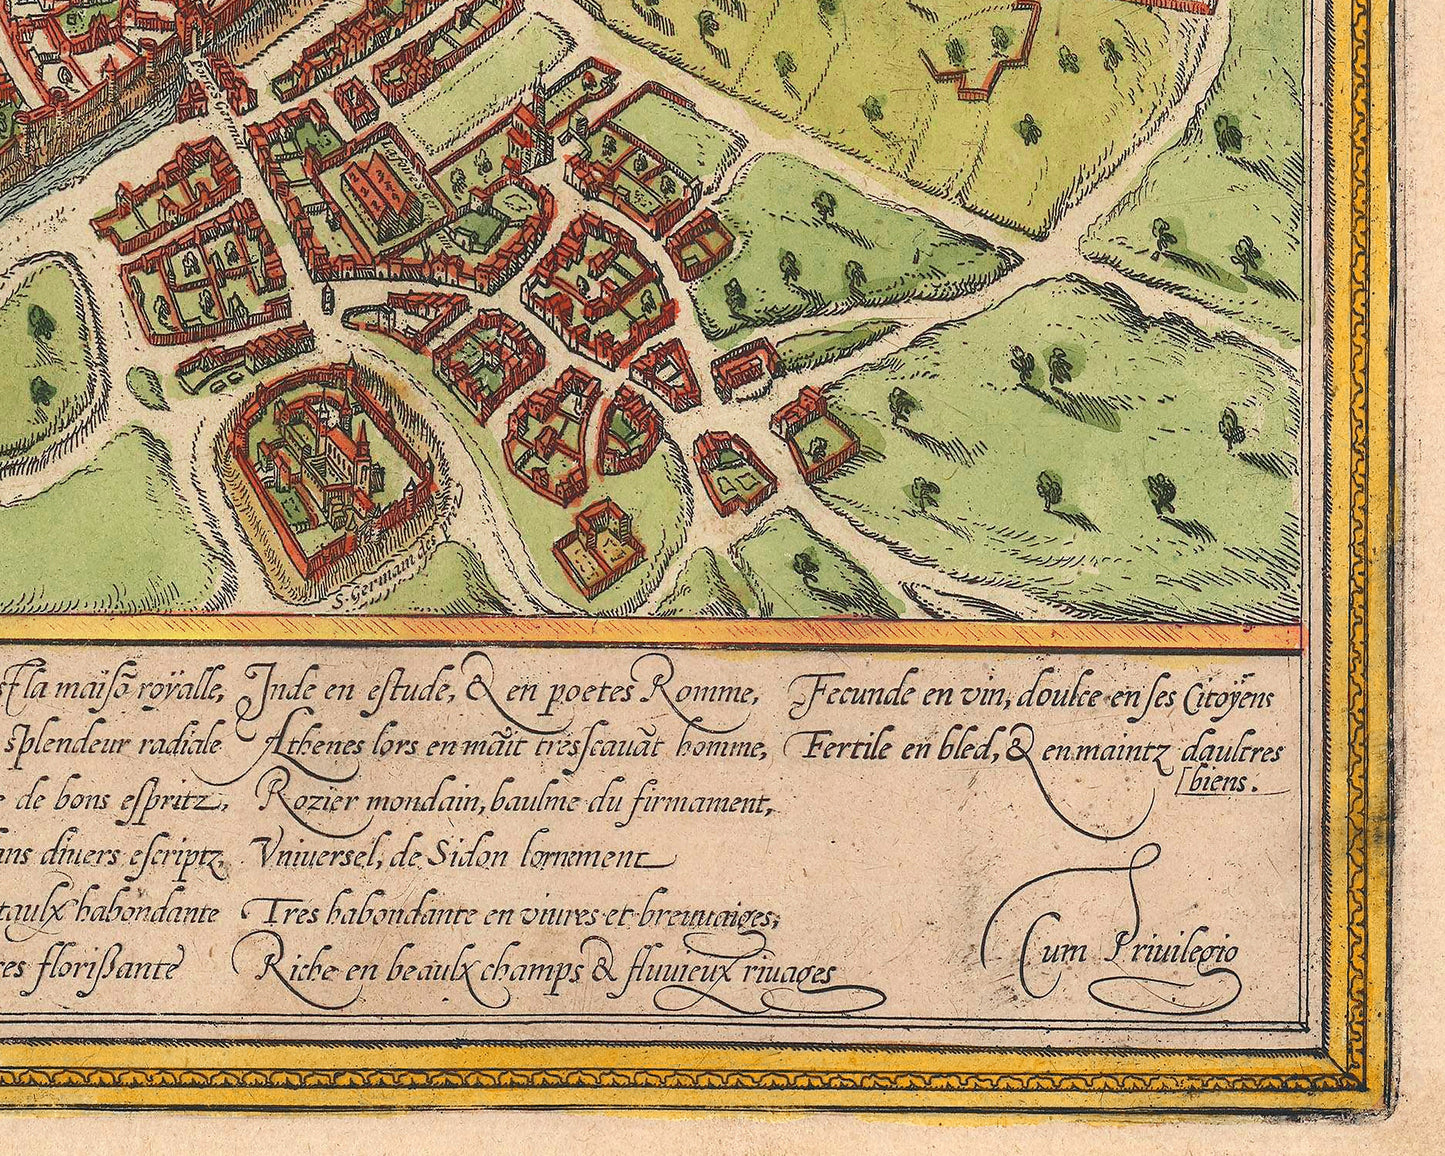 Portes S. Germai
La foire S. G.
S. Germain des
est la maisõ roÿalle,
splendeur radiale
de bons espritz,
ans diuers escriptz,
taulx habondante
res florißante
Inde en estude, & en poetes Romme,
Athenes lors en maĩt tresscauãt homme,
Rozier mondain, baulme du firmament,
Vniuersel, de Sidon lornement
Tres habondante en viures et breuuaiges,
Riche en beaulx champs & fluuieux riuages
Fecunde en vin, doulce en ses Citoÿens
Fertile en bled, & en maintz daultres
biens.
Cum Priuilegio